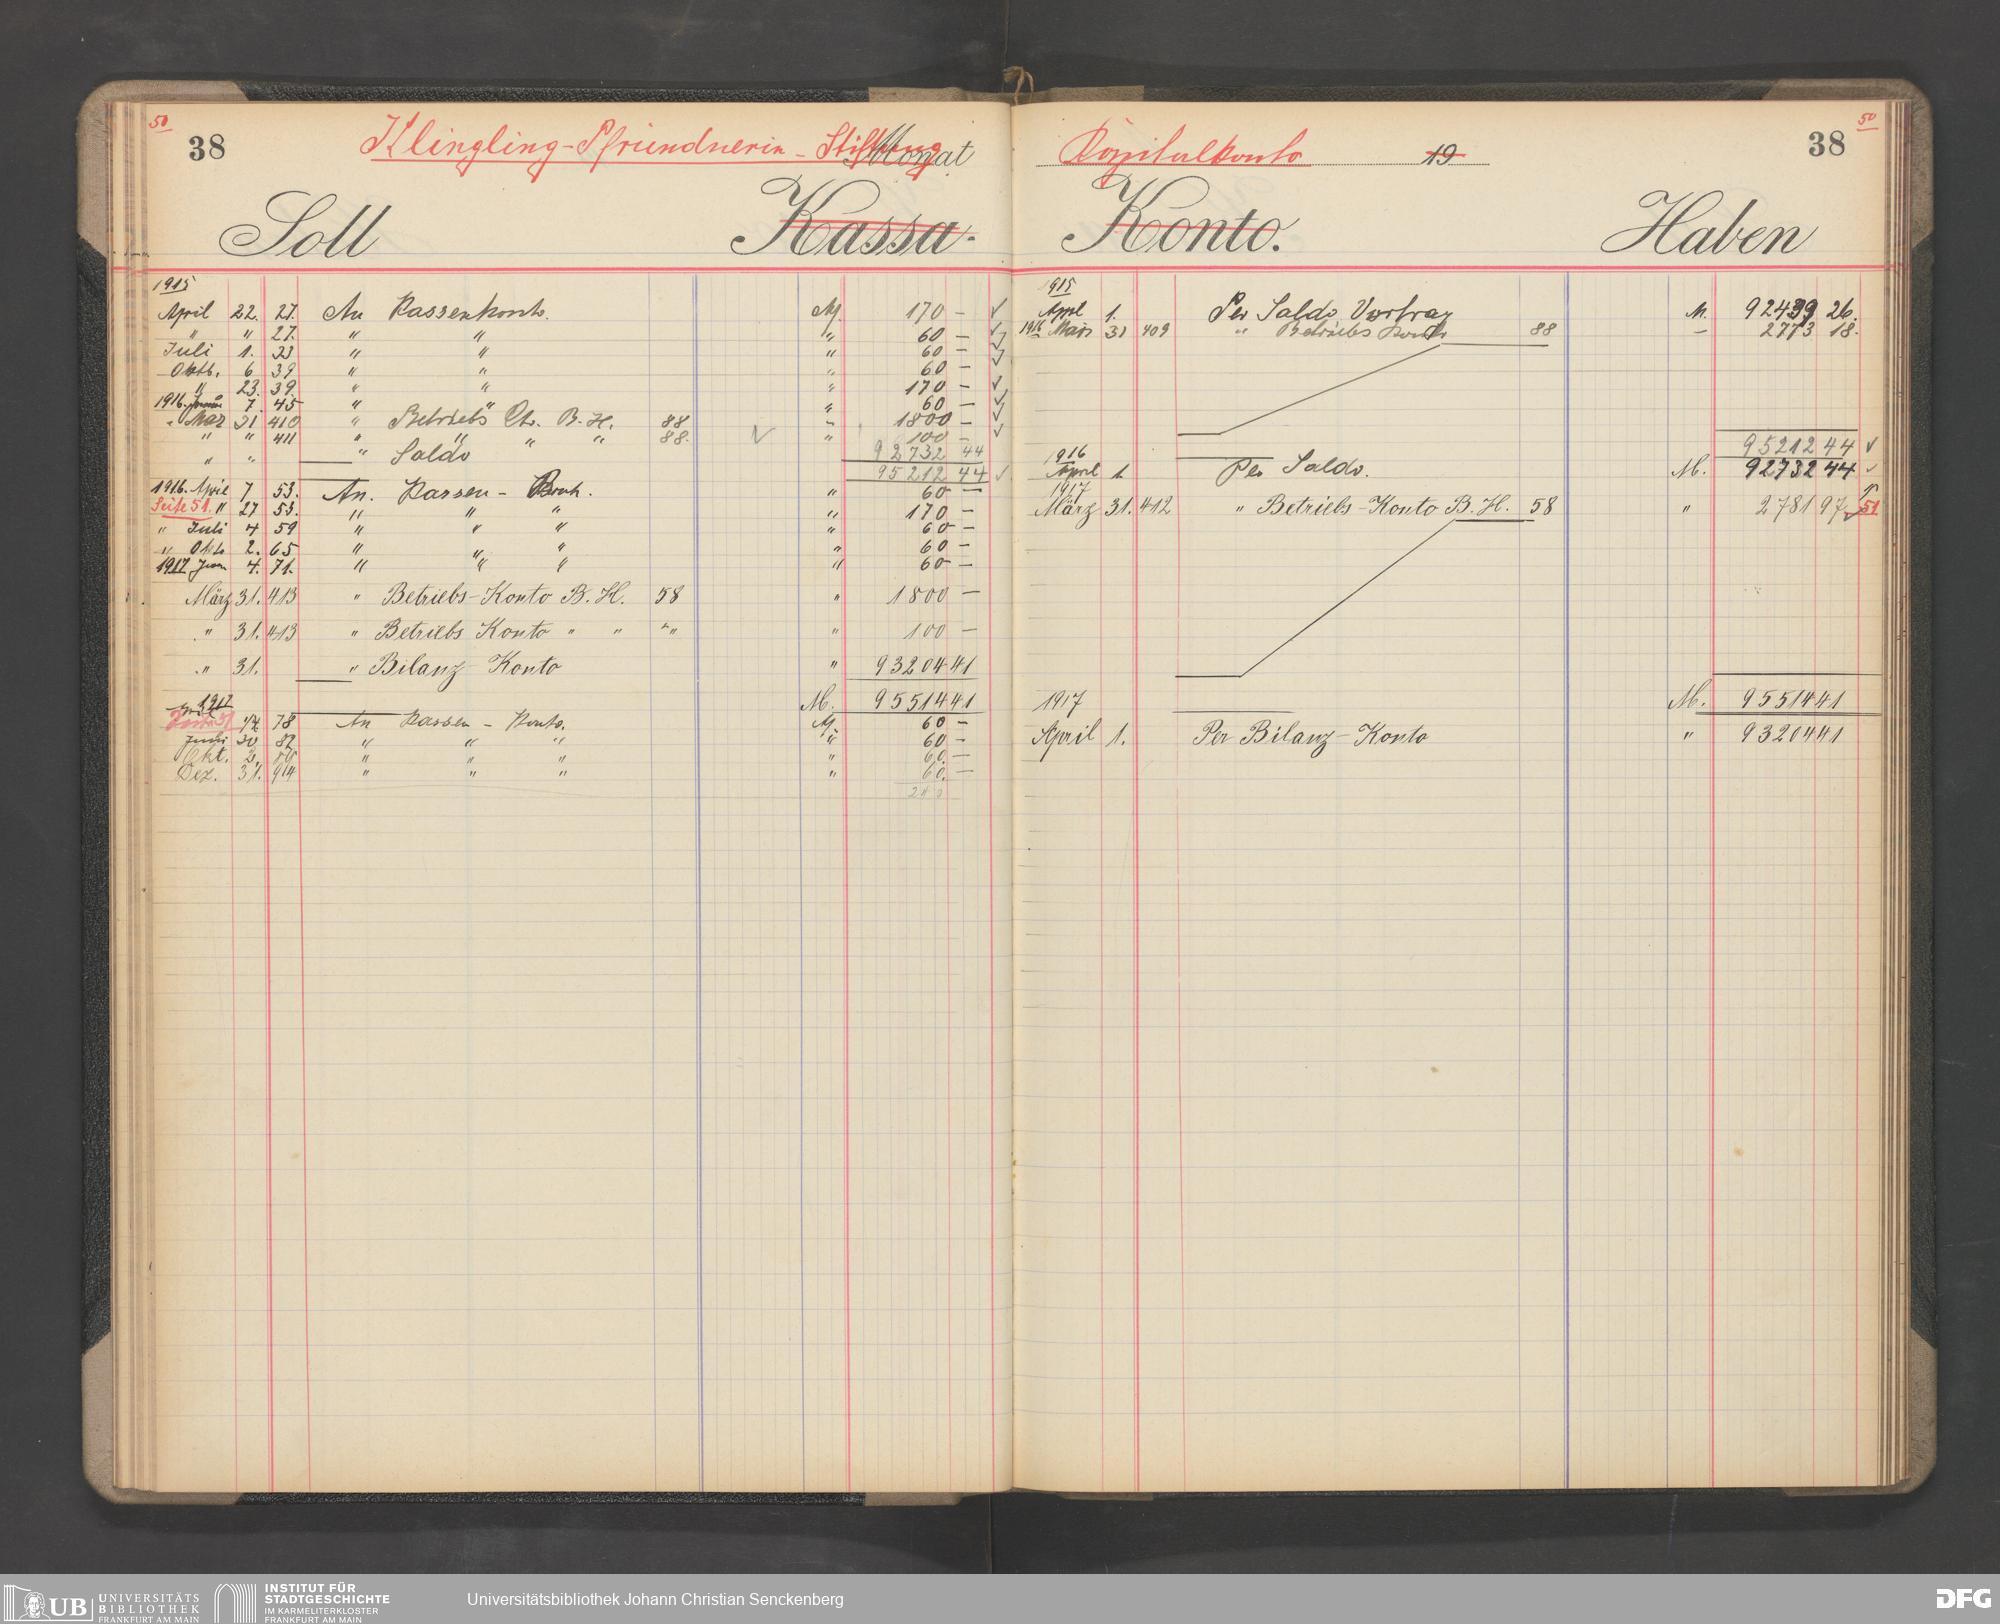 50
38
Klingling-Pfründnerin-Stiftung
Monat
Soll
Kassa-
1915
April 22. 27. An Kassenkonto. M. 170 —
" " 27. " " " 60 —
Juli 1. 33 " " " 60 —
Oktb. 6 39 " " " 60 —
" 23. 39. " " " 170 —
1916. Januar 7. 45 " " " 60 —
" März 31 410 " Betriebs Cto. B. H. 88 " 1800 —
" " 411 " " " " 88. " 100 —
" " " Saldo 92732 44
95212 44
1916. April 7. 53. An. Kassen - Konto. " 60 —
Seite 51. " 27 53. " " " " 170 —
" Juli 4 59 " " " " 60 —
" Oktb 2. 65 " " " " 60 —
1917 Jan 4. 71. " " " " 60 —
März 31. 413 " Betriebs-Konto B. H. 58 " 1800 —
" 31. 413 " Betriebs Konto " " " " 100 —
" 31. " Bilanz-Konto " 93204 41
M. 95514 41
1917
17. 78 An Kassen - Konto. M. 60 —
Juli 30 82 " " " " 60 —
Okt. 2. " " " " 60. —
Dez. 31. 94 " " " " 60. —
240
50
38
Kapitalkonto
19
Konto.
Haben
1915
April 1. Per Saldo Vortrag M. 92439 26.
1916 März 31 409 " Betriebs Konto 88 — 2773 18.
95212 44
1916
April 1. Per Saldo. M. 92732 44
1917
März 31. 412 " Betriebs-Konto B. H. 58 " 2781 97 51
1917 M. 95514 41
April 1. Per Bilanz-Konto " 93204 41
UB UNIVERSITÄTS
BIBLIOTHEK
FRANKFURT AM MAIN
INSTITUT FÜR
STADTGESCHICHTE
IM KARMELITERKLOSTER
FRANKFURT AM MAIN
Universitätsbibliothek Johann Christian Senckenberg
DFG